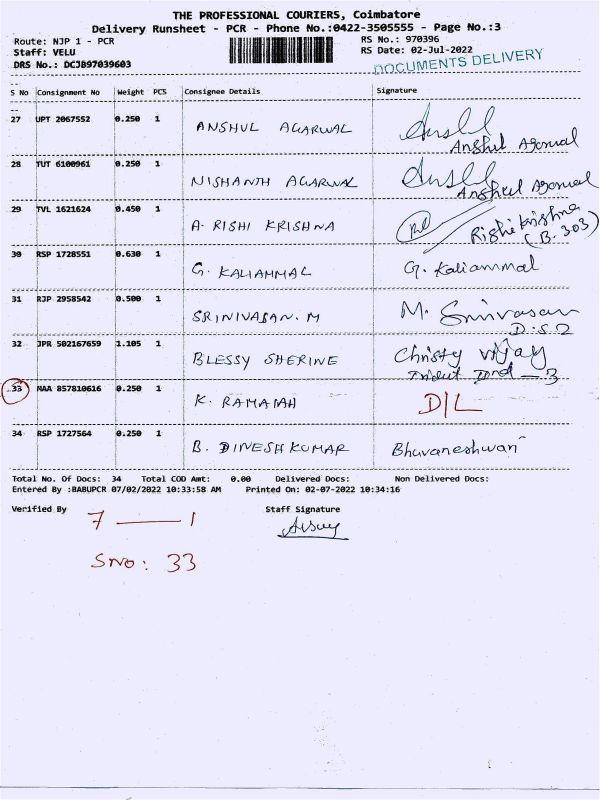 THE PROFESSIONAL COURIERS, Coimbatore
Delivery Runsheet - PCR - Phone No.:0422-3505555 - Page No.:3
Route: NJP 1 - PCR RS No.: 970396
Staff: VELU RS Date: 02-Jul-2022
DRS No.: DCJB97039603 DOCUMENTS DELIVERY
S No Consignment No Weight PCS Consignee Details Signature
27 UPT 2067552 0.250 1 ANSHUL AGARWAL
Anshul Agarwal
28 TUT 6100961 0.250 1 NISHANTH AGARWAL
Anshul Agarwal
29 TVL 1621624 0.450 1 A. RISHI KRISHNA Rishi Krishna
(B.303)
30 RSP 1728551 0.630 1 G. KALIAMMAL G. Kaliammal
31 RJP 2958542 0.500 1 SRINIVASAN. M M. Srinivasan
32 JPR 502167659 1.105 1 BLESSY SHERINE Christy Vijay
33 MAA 857810616 0.250 1 K. RAMAIAH D/L
34 RSP 1727564 0.250 1 B. DINESH KUMAR Bhuvaneshwari
Total No. Of Docs: 34 Total COD Amt: 0.00 Delivered Docs: Non Delivered Docs:
Entered By :BABUPCR 07/02/2022 10:33:58 AM Printed On: 02-07-2022 10:34:16
Verified By Staff Signature
7 — 1
SNO: 33